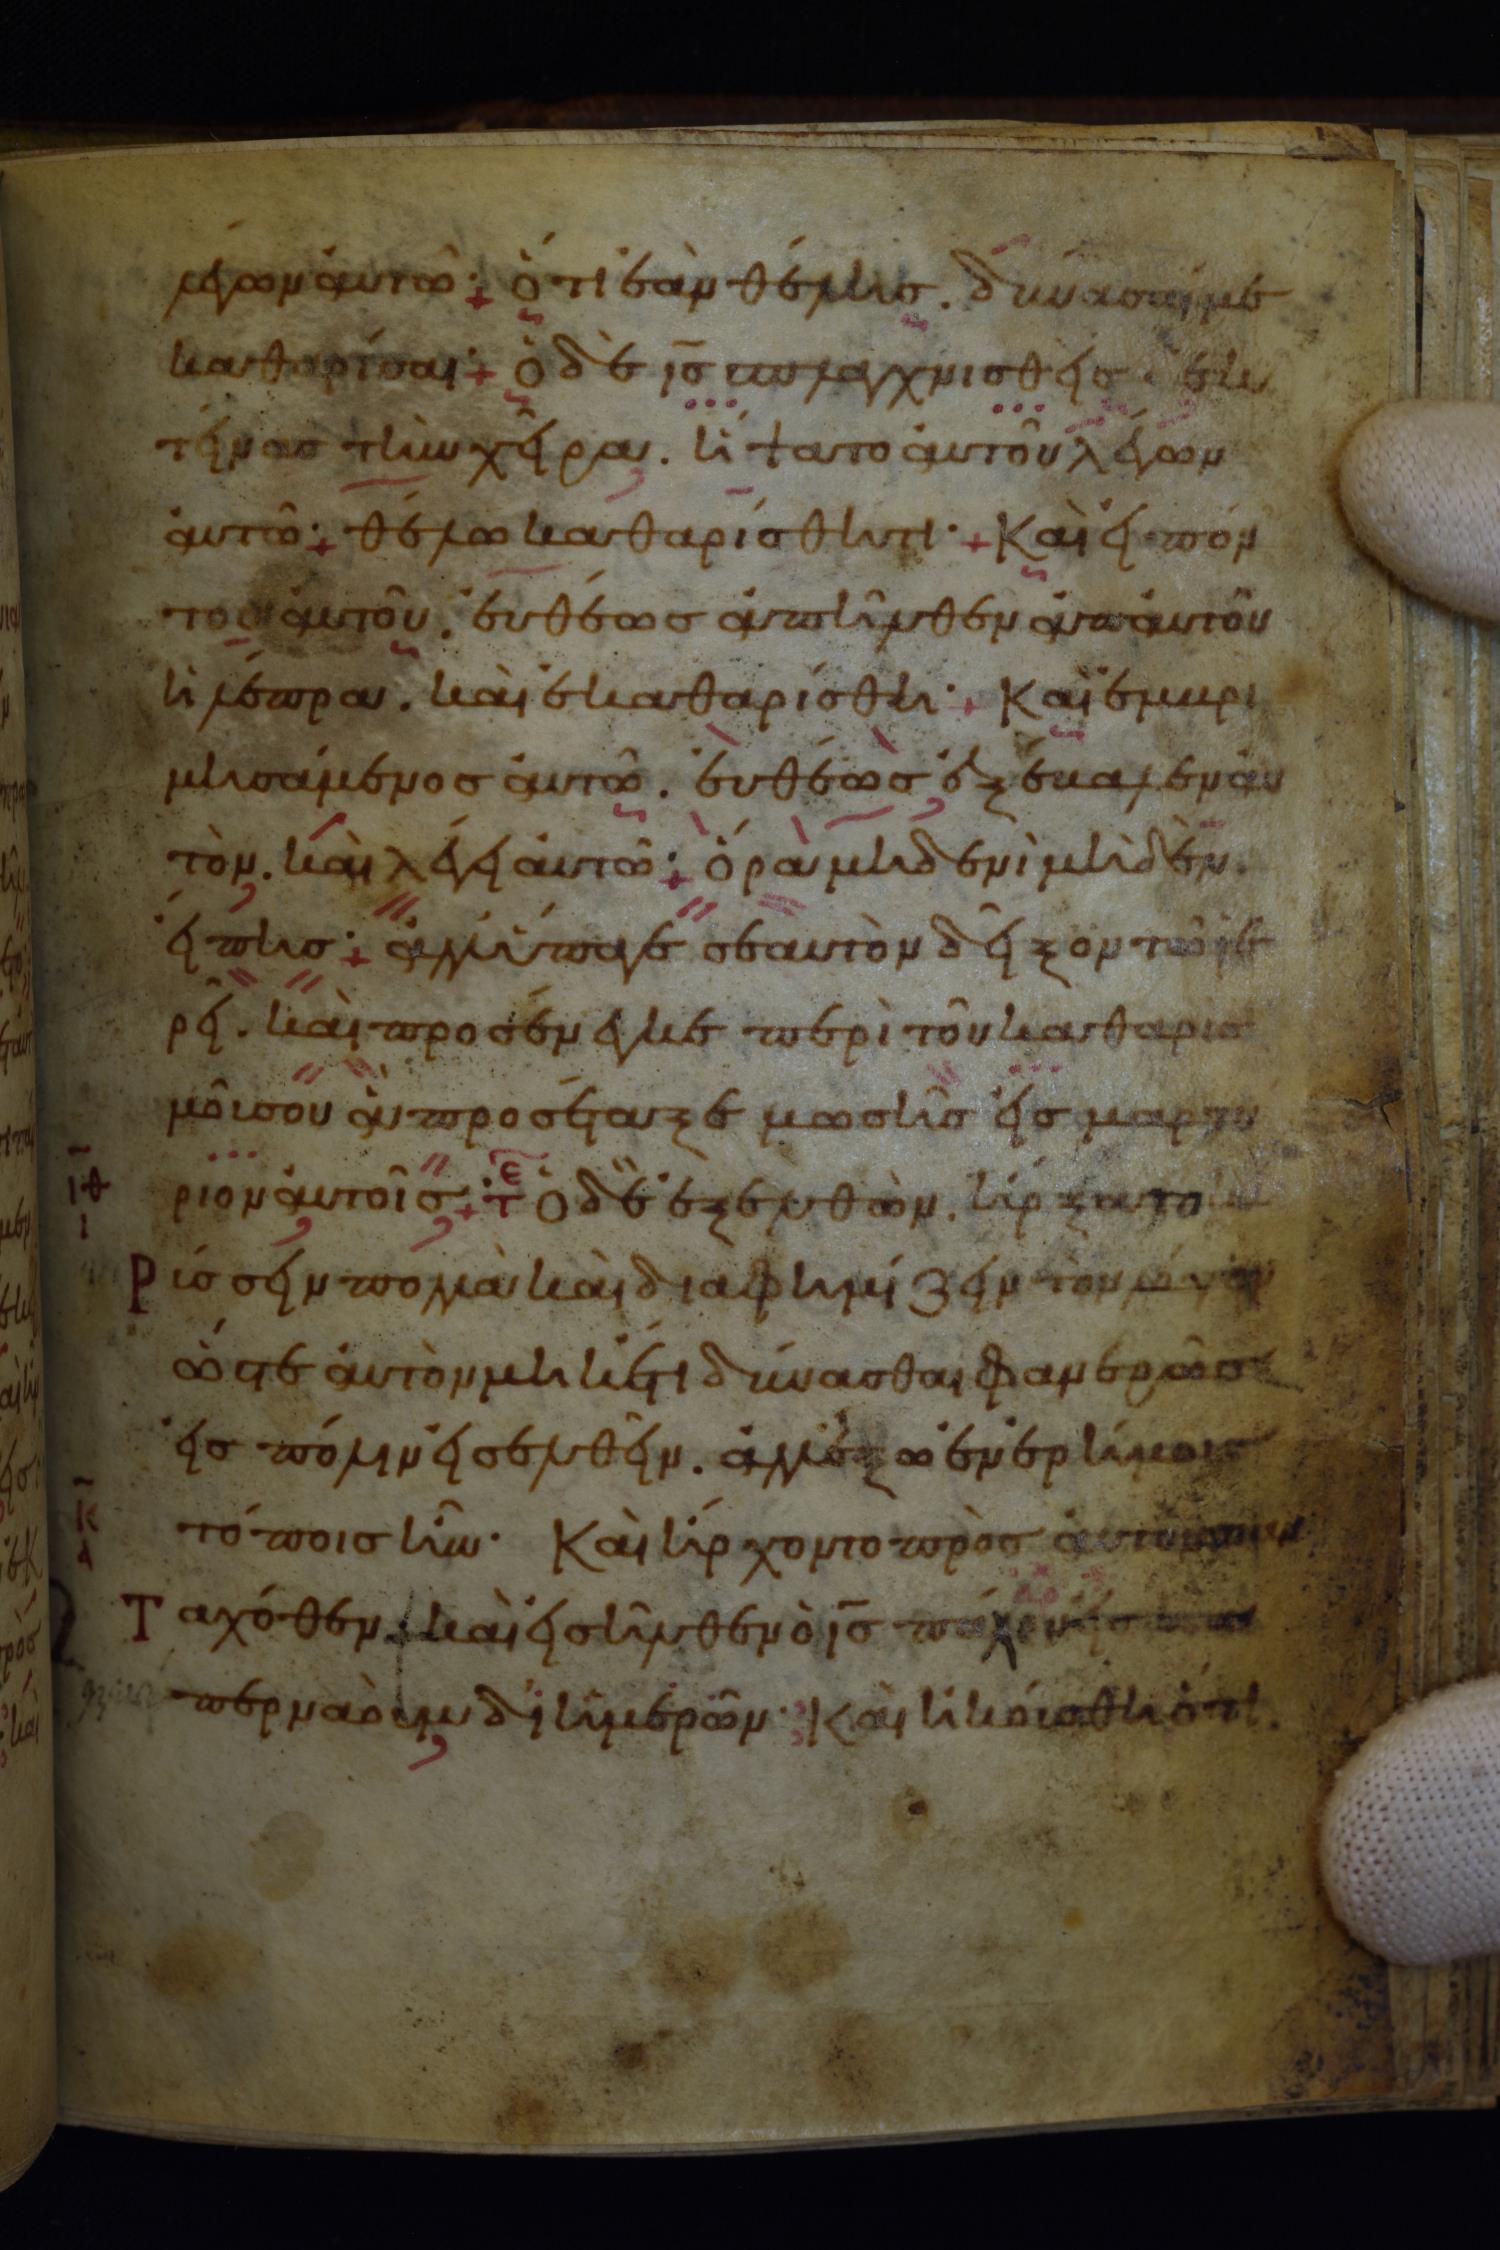 λέγων αὐτῶ· ὅτι ἐὰν θέλης. δύνασαί με
καθαρίσαι· ὁ δὲ ῑς σπλαγχνισθεὶς ἐκ
τείνας τὴν χεῖρα. ἥψατο αὐτοῦ λέγων
αὐτῶ· θέλω καθαρίσθητι· Καὶ εἰπόν
τος αὐτοῦ. ἐυθέως ἀπῆλθεν ἀπ αὐτοῦ
ἡ λέπρα. καὶ ἐκαθαρίσθη· Καὶ ἐμβρι
μησάμενος αὐτῶ. ἐυθέως ἐξέβαλεν ἀυ
τὸν. καὶ λέγει αὐτῶ· ὅρα μηδενὶ μηδὲν
εἴπης· ἀλλ ὕπαγε σεαυτὸν δεῖξον τῶ ἱε
ρεῖ. καὶ προσένεγκε περὶ τοῦ καθαρισ
μοῦ σου ἃ προσέταξε μωσῆς εἰς μαρτύ
ῑθ ριον αὐτοῖς· τε Ὁ δὲ ἐξελθὼν. ἤρξατο κη
ι
Ρ ύσσειν πολλὰ καὶ διαφημίζειν τὸν λόγον
ὥστε αὐτὸν μηκέτι δύνασθαι φανερῶς
εἰς πόλιν εἰσελθεῖν. ἀλλ ἔξω ἐν ἐρήμοις
κ̄ τόποις ἦν· Καὶ ἤρχοντο πρὸς αὐτὸν παν
α
Τ αχόθεν. καὶ εἰσῆλθεν ὁ ῑς πάλιν εἰς κα
περναοὺμ δι ἡμερῶν· Καὶ ἠκούσθη ὅτι